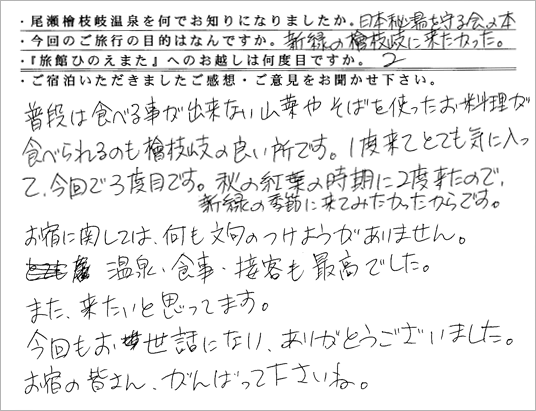 ・尾瀬檜枝岐温泉を何でお知りになりましたか。日本秘湯を守る会の本
・今回のご旅行の目的はなんですか。新緑の檜枝岐に来たかった。
・『旅館ひのえまた』へのお越しは何度目ですか。 2
・ご宿泊いただきましたご感想・ご意見をお聞かせ下さい。
普段は食べる事が出来ない山菜や そばを使ったお料理が
食べられるのも檜枝岐の良い所です。1度来てとても気に入っ
て、今回で3度目です。秋の紅葉の時期に2度来たので、
新緑の季節に来てみたかったからです。
お宿に関しては、何も文句のつけようがありません。
温泉・食事・接客も最高でした。
また、来たいと思ってます。
今回もお世話になり、ありがとうございました。
お宿の皆さん、がんばって下さいね。